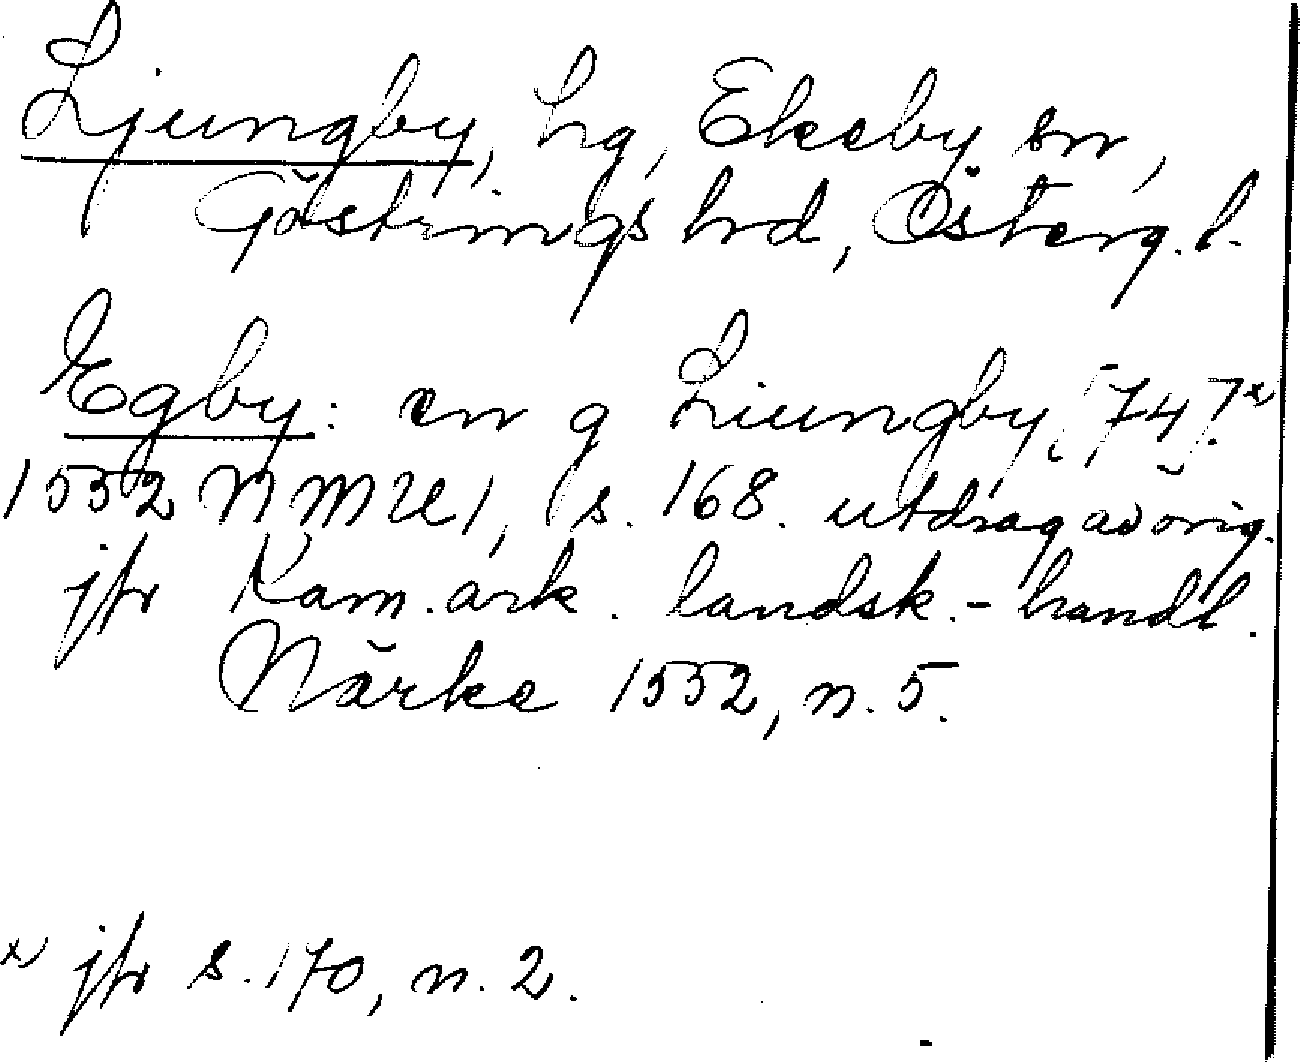 Ljungby, hg, Ekeby sn,
Göstrings hrd, Österg. l.
Egby: en g Liungby [74].x
1552 NMU1, s. 168. utdrag av orig.
jfr Kam. ark. landsk.-handl.
Närke 1552, n. 5.
x jfr s. 170, n. 2.